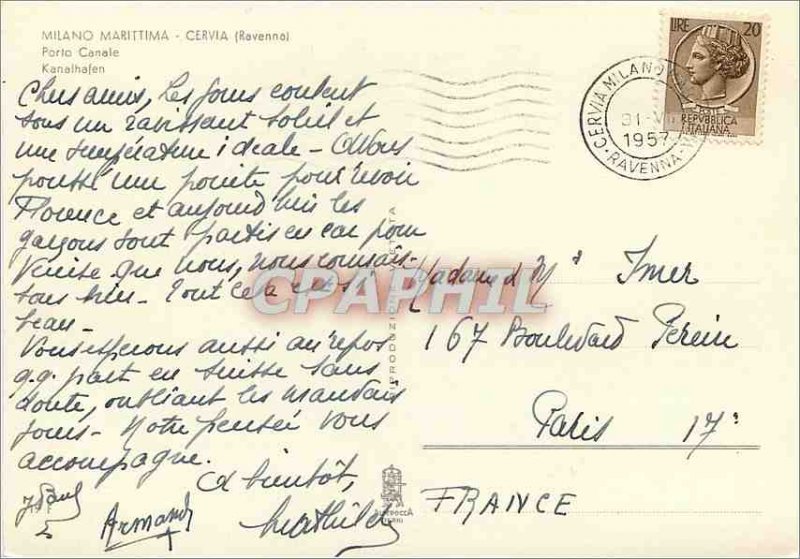 MILANO MARITTIMA - CERVIA (Ravenna)
Porto Canale
Kanalhafen
Chers amis, Les jours coulent
sous un ravissant soleil et
une température idéale - Avons
poussé une pointe pour revoir
Florence et aujourd'hui les
garçons sont partis en car pour
Venise que nous, nous connais-
sons bien - Tout cela est si
beau -
Vous espérons aussi au repos
q.q. part en Suisse sans
doute, oubliant les mauvais
jours - Notre pensée vous
accompagne.
A bientôt,
J Paul
Armand
Mathilde
LIRE 20
REPVBBLICA
ITALIANA
CERVIA MILANO
1957
RAVENNA
CPARHIL
RIPRODUZIONE VIETATA
Madame & Mr Imer
167 Boulevard Pereire
Paris 17e
FRANCE